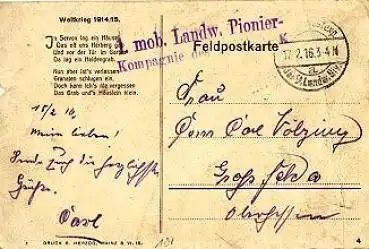 Weltkrieg 1914/15.
Zu Servon lag ein Häuse
Das oft uns Herberg ge
Und vor der Tür im Garten
Da lag ein Heldengrab.
Nun aber ist's verlassen
Granaten schlugen ein.
Doch kann ich's nie vergessen
Das Grab und's Häuslein klein.
1. mob. Landw. Pionier-
Kompagnie des K
Feldpostkarte
17.2.16.3-4N
a
der 9. Landw. Div.
17/2 16,
Mein Lieben!
Sende Euch die herzlichsten
Grüße.
Carl
Frau
Carl
Groß Felda
Oberhessen
DRUCK E. HERZOG, MAINZ
4